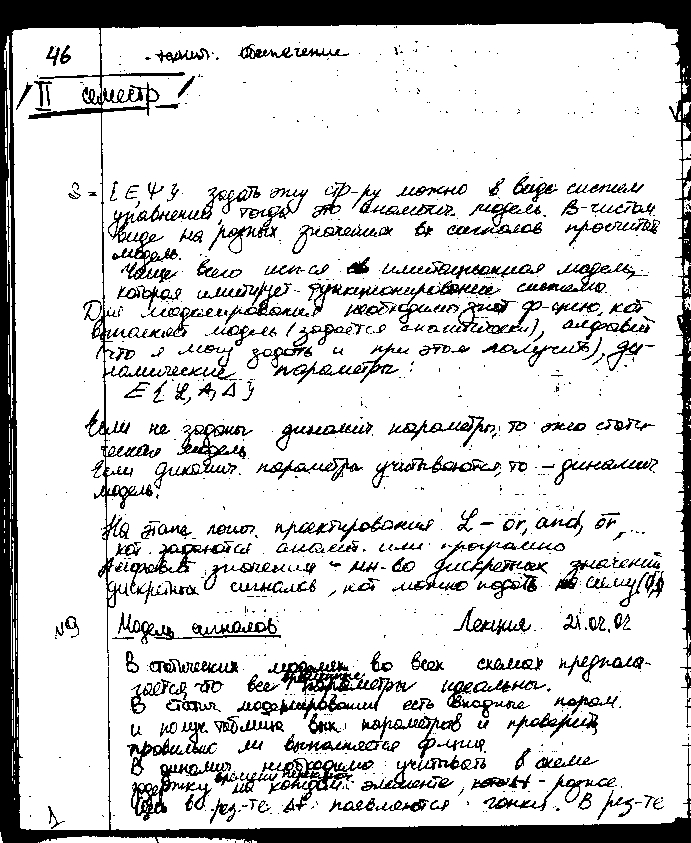 46
обеспечение
II семестр
S = {E, Ψ} задать эту стр-ру можно в виде систем
уравнений, тогда это аналитич. модель. В чистом
виде на разных значениях вх сигналов просчитать
модель.
Чаще всего исп-ся имитационная модель,
которая имитирует функционирование системы.
Для моделирования необходимо знать ф-цию, кот
выполняет модель (задаётся аналитически), алфавит
(что я могу задать и при этом получить), ди-
намические параметры:
E {L, A, Δ}
Если не заданы динамич. параметры, то это стати-
ческая модель
Если динамич. параметры учитываются, то – динамич
модель.
На этапе логич. проектирования L – or, and, or, ...
кот задаются аналит. или програмно
Алфавит значения – мн-во дискретных значений
дискретных сигналов, кот можно подать на схему (0,1)
№9 Модель сигналов Лекция 21.02.02
В статических моделях во всех схемах предпола-
гается, что все временные параметры идеальны.
В статич. моделировании есть входные парам.
и получ. таблица вых. параметров и проверить
правильно ли выполняется ф-ция.
В динамич необходимо учитывать в схеме
задержку времени на каждом элементе, разное.
в рез-те Δt появляются гонки. В рез-те
1